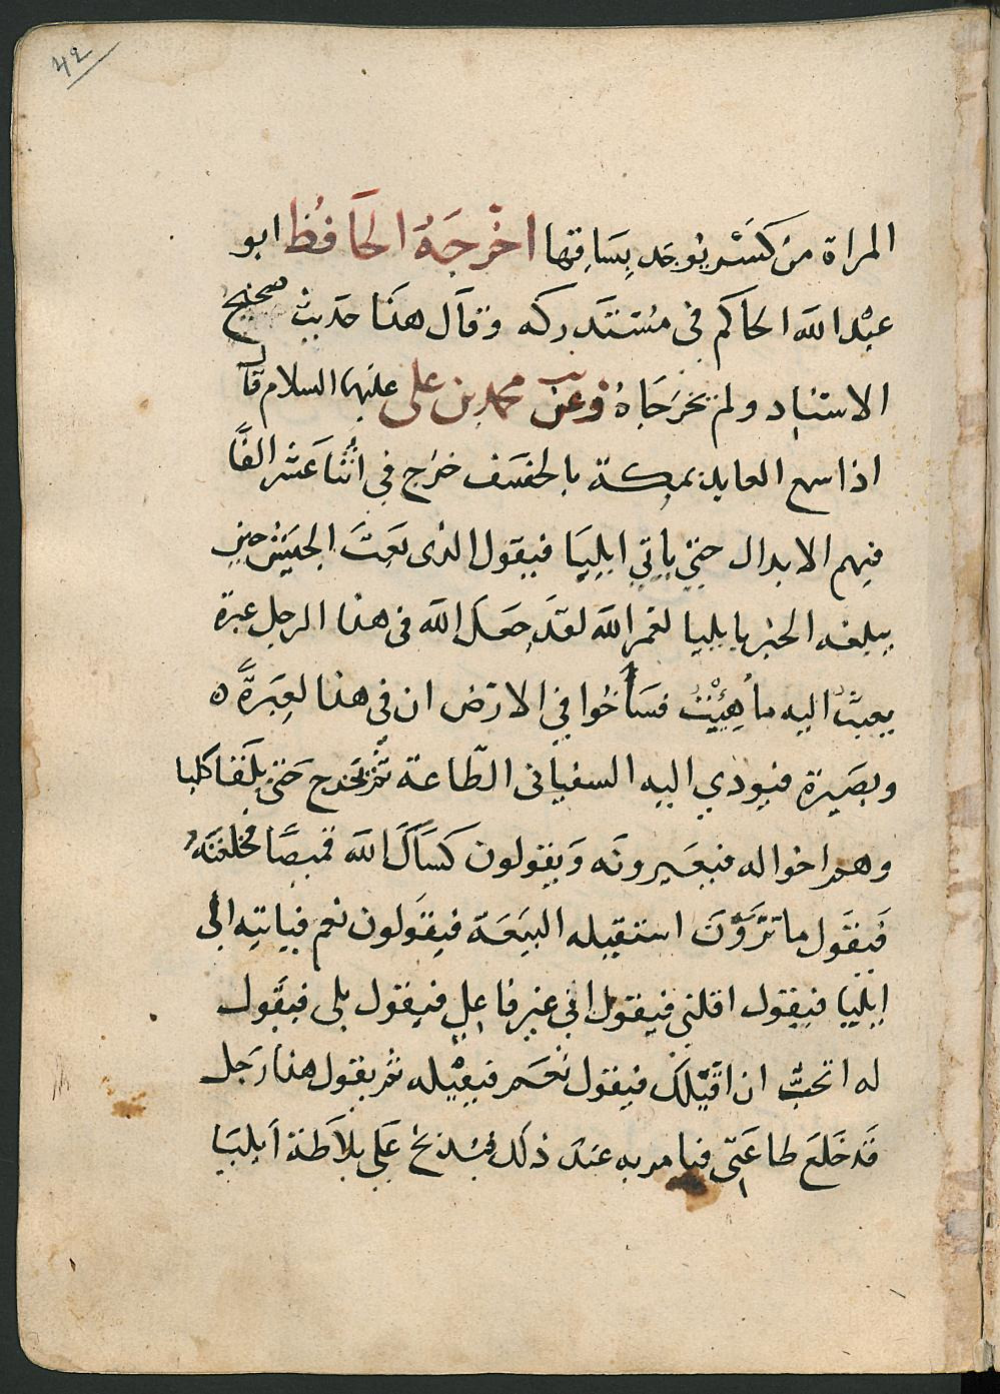 ٤٢
المراة من كسر يوجد بساقها اخرجه الحافظ ابو
عبد الله الحاكم في مستدركه وقال هذا حديث صحيح
الاسناد ولم يخرجاه وعن محمد بن علي عليهما السلام قال
اذا سمع العايذ بمكة بالخسف خرج في اثنا عشر الفًا
فيهم الابدال حتى ياتي ايليا فيقول الذي بعث الجيش حين
يبلغه الخبر بايليا لعمر الله لقد جعل الله في هذا الرجل عبرة
بعثت اليه ما فساخوا في الارض ان في هذا لعبرةً
وبصيرة فيودي اليه السفياني الطاعة ثم يخرج حتى يلقا كلبا
وهم اخواله فيعيرونه ويقولون كساك الله قميصًا فخلعته
فيقول ما ترون استقيله البيعة فيقولون نعم فياتيه الى
ايليا فيقول اقلني فيقول اني غير فاعل فيقول بلى فيقول
له اتحب ان اقيلك فيقول نعم فيقيله ثم يقول هذا رجل
قد خلع طاعتي فيامر به عند ذلك فيذبح على بلاطة ايليا